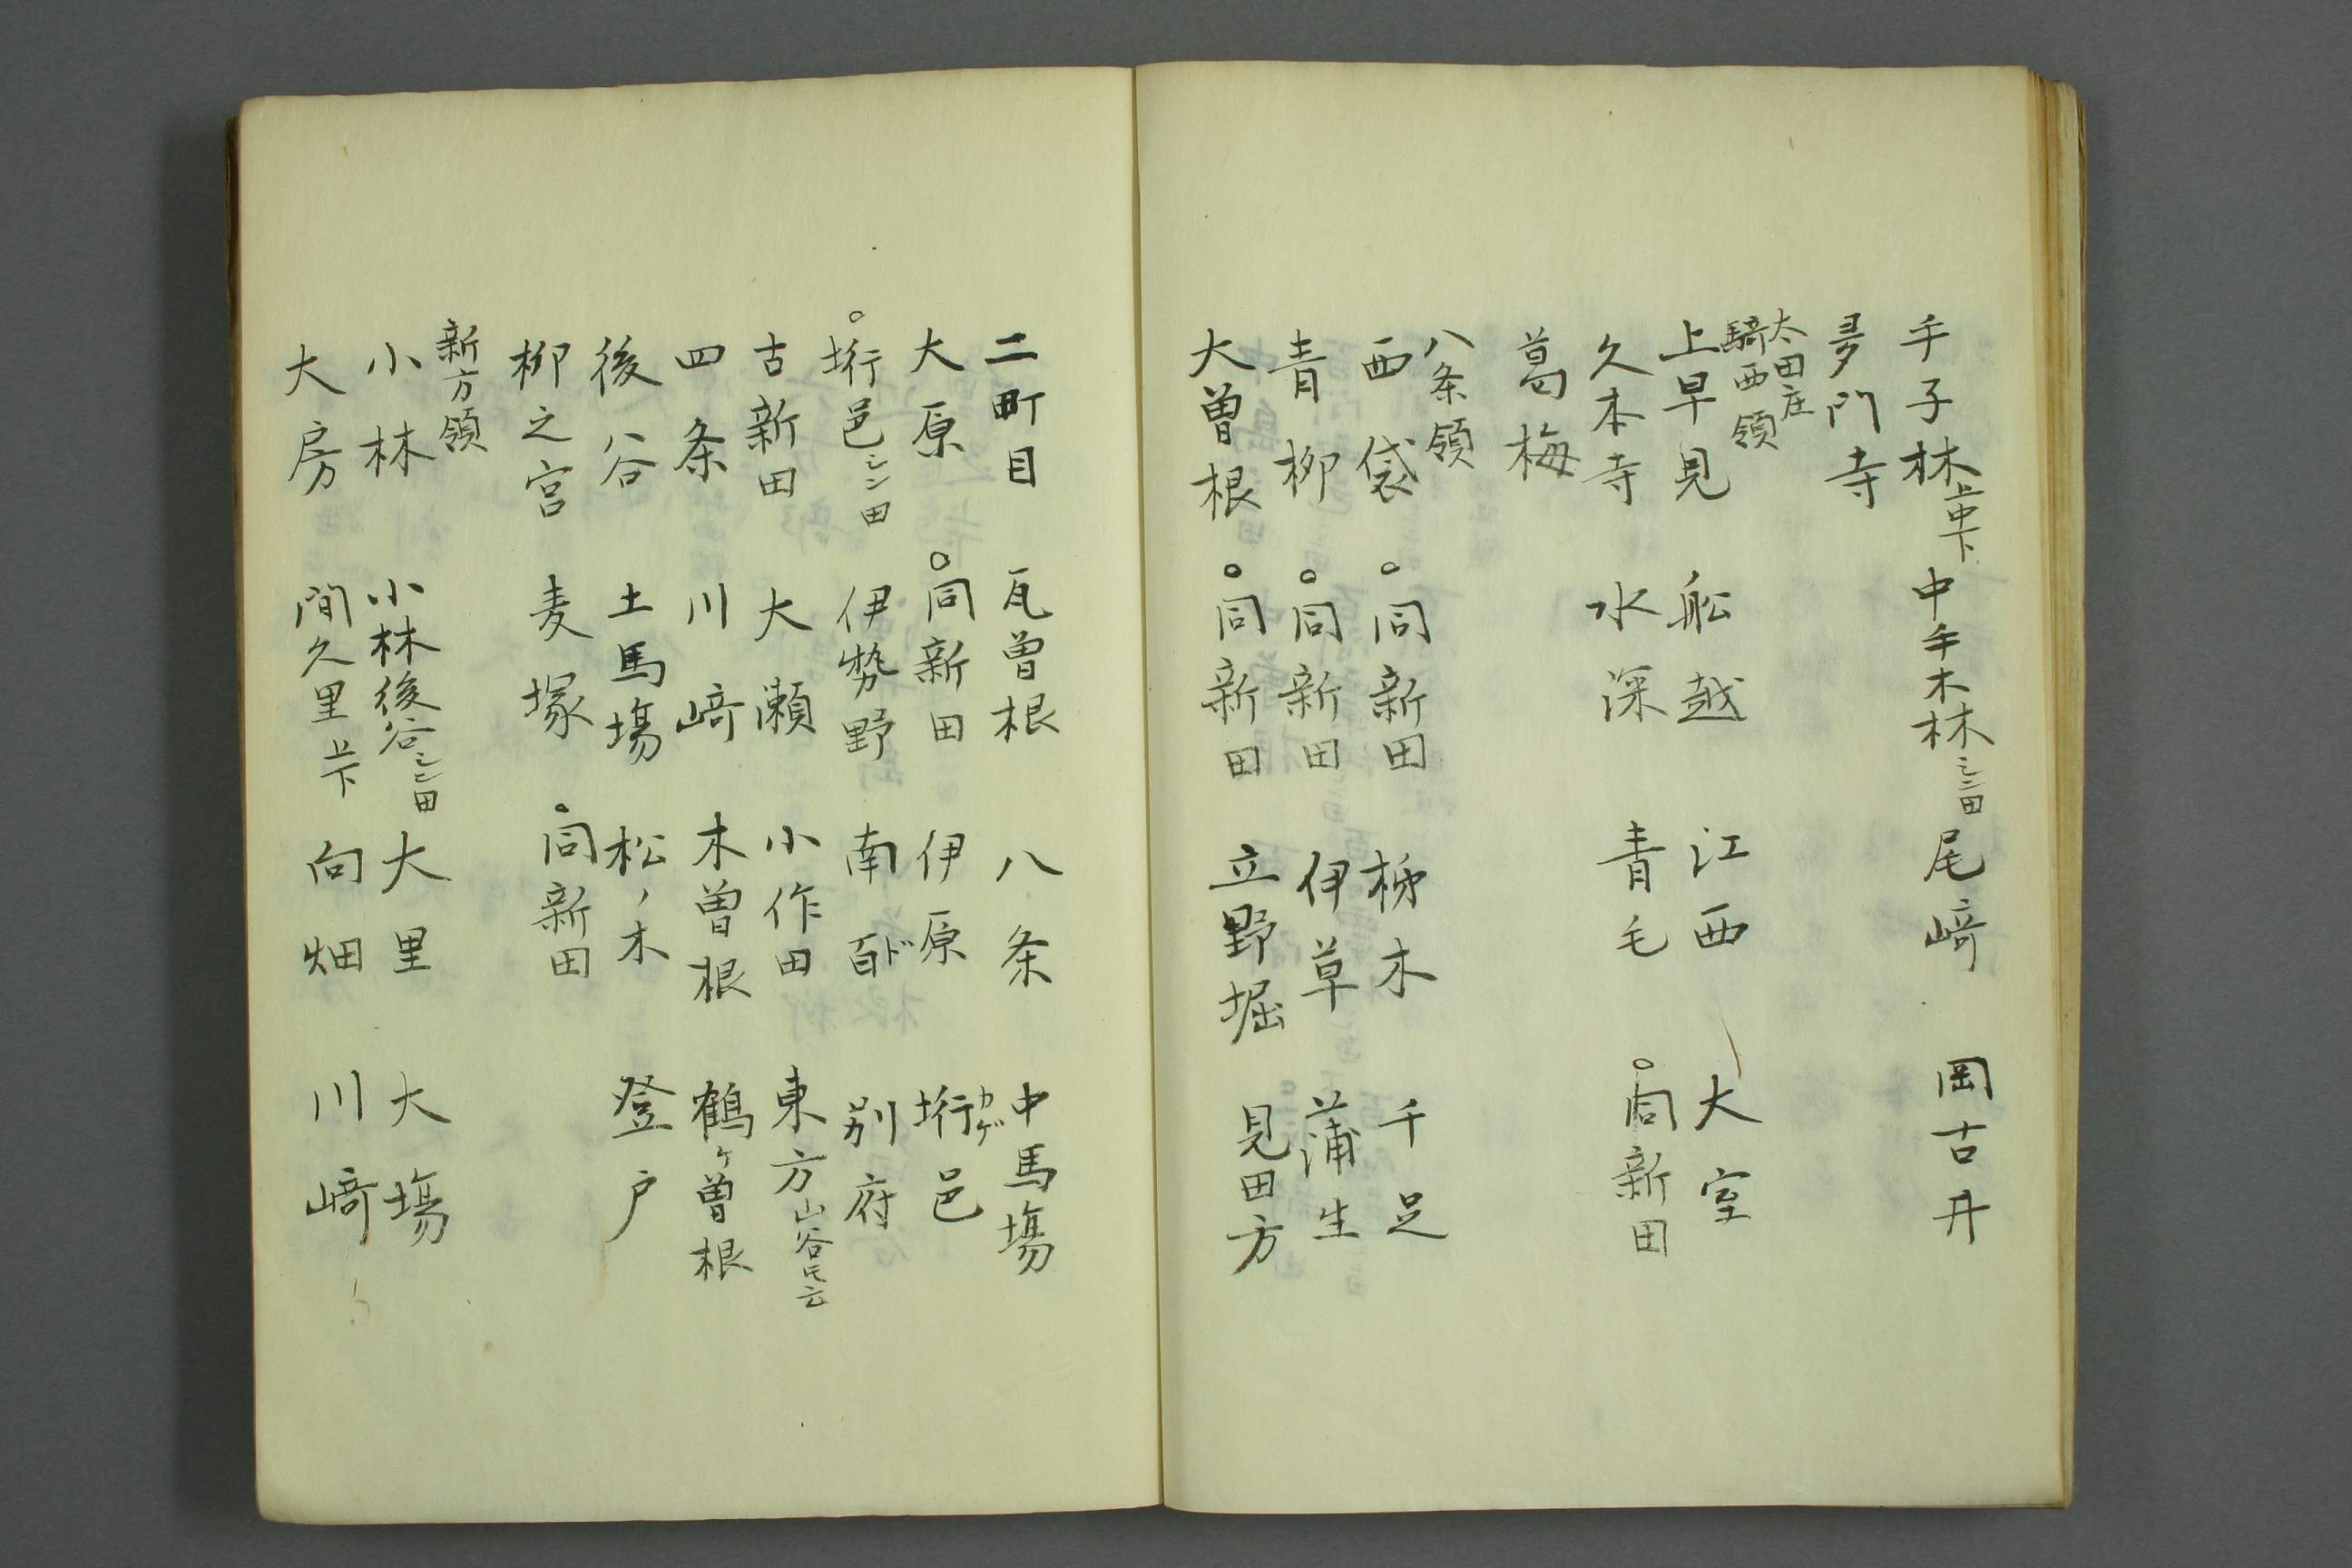 手子林上中下 中手木林シン田 尾﨑 岡古井
多門寺
太田庄
騎西領
上早見 舩越 江西 大室
久本寺 水深 青毛 ○同新田
葛梅
八条領
西袋 ○同新田 柳木 千足
青柳 ○同新田 伊草 蒲生
大曽根 ○同新田 立野堀 見田方
二町目 瓦曽根 八条 中馬塲
大原 ○同新田 伊原 垳邑カゲ
○垳邑シン田 伊勢野 南百ド 别府
古新田 大瀬 小作田 東方山谷トモ云
四条 川﨑 木曽根 鶴ヶ曽根
後谷 土馬塲 松ノ木 登戸
柳之宮 麦塚 ○同新田
新方領
小林 小林後谷シン田 大里 大塲
大房 間久里上下 向畑 川﨑